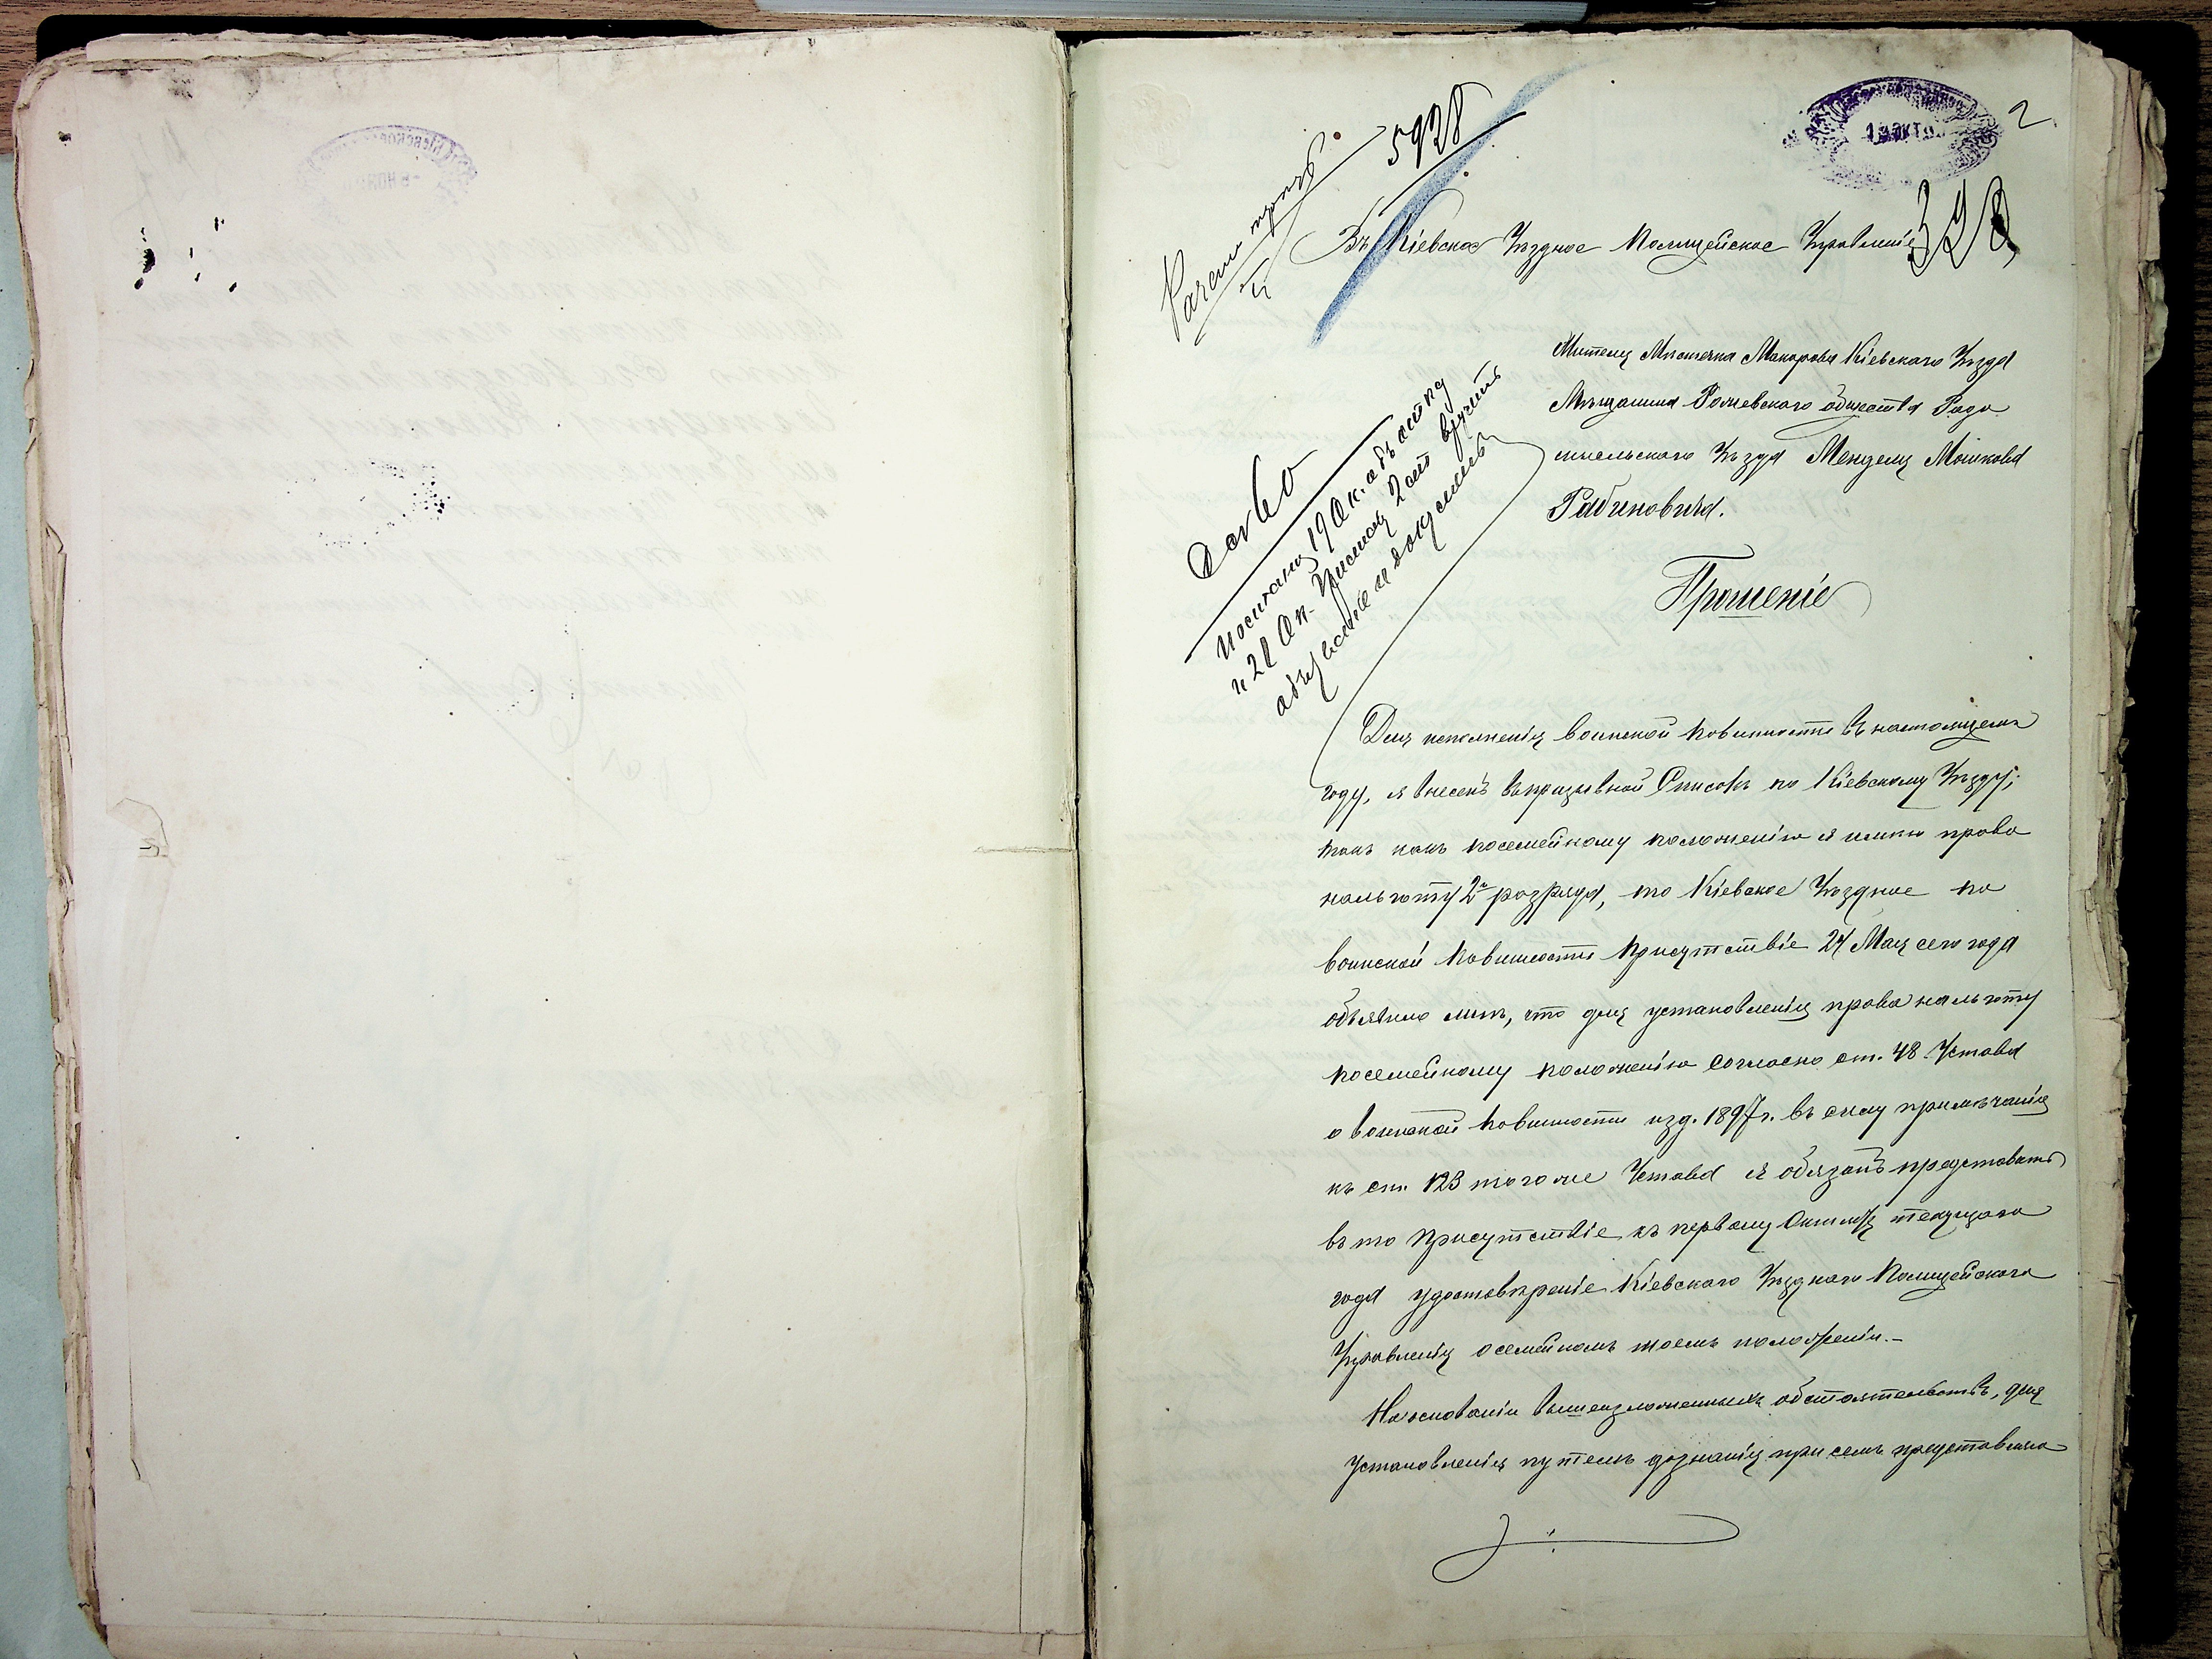 2
13 ОКТ
5928
328
Въ Кіевское Уѣздное Полицейское Управленіе
Жителя Мѣстечка Макарова Кіевскаго Уѣзда
Мѣщанина Рожевскаго общества Радо
мысльскаго Уѣзда Менделя Мошкова
Рабиновича.
Прошеніе
Дѣло
19 Ок.
и 21 Ок.
Для исполненія воинской повинности въ настоящемъ
году, я внесенъ въ призывной Списокъ по Кіевскому Уѣзду;
такъ какъ посемейному положенію я имѣю право
нальготу 2го разряда, то Кіевское Уѣздное по
воинской повинности Присутствіе 24 Мая сего года
объявило мнѣ, что для установленія права нальготу
посемейному положенію согласно ст. 48 Устава
о воинской повинности изд. 1897 г. въ силу примѣчанія
къ ст. 123 того же Устава я обязанъ представить
въ то Присутствіе къ первому Октября текущаго
года удостовѣреніе Кіевскаго Уѣзднаго Полицейскаго
Управленія о семейномъ моемъ положеніи.-
На основаніи вышеизложенныхъ обстоятельствъ, для
установленія путемъ дознанія при семъ представляю